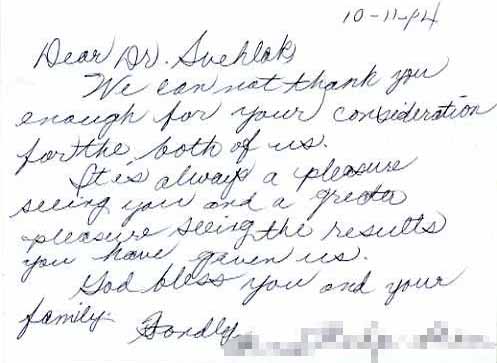 10-11-94
Dear Dr. Svehlak
We can not thank you
enough for your consideration
for the both of us.
It is always a pleasure
seeing you and a greata
pleasure seeing the results
you have gaven us.
God bless you and your
family.
Fondly